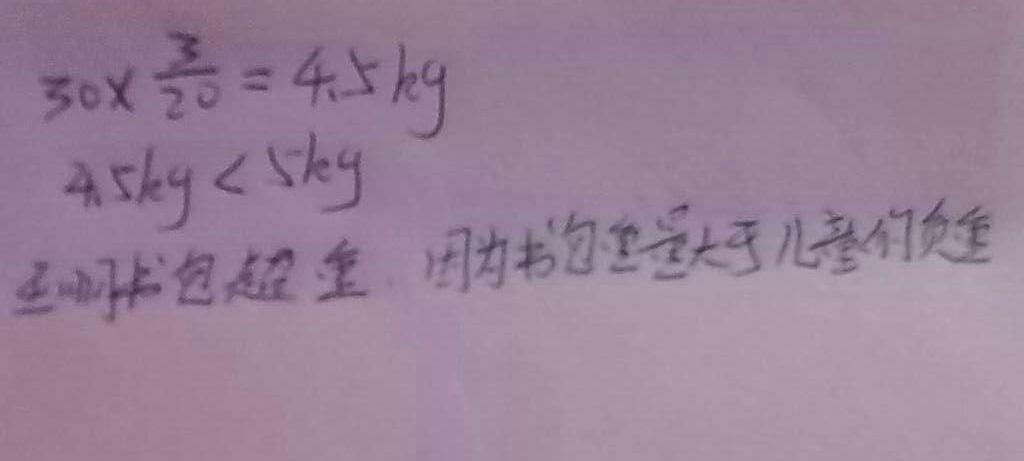 30×3/20=4.5kg
4.5kg<5kg
王明书包超重. 因为书包重量大于儿童们负重